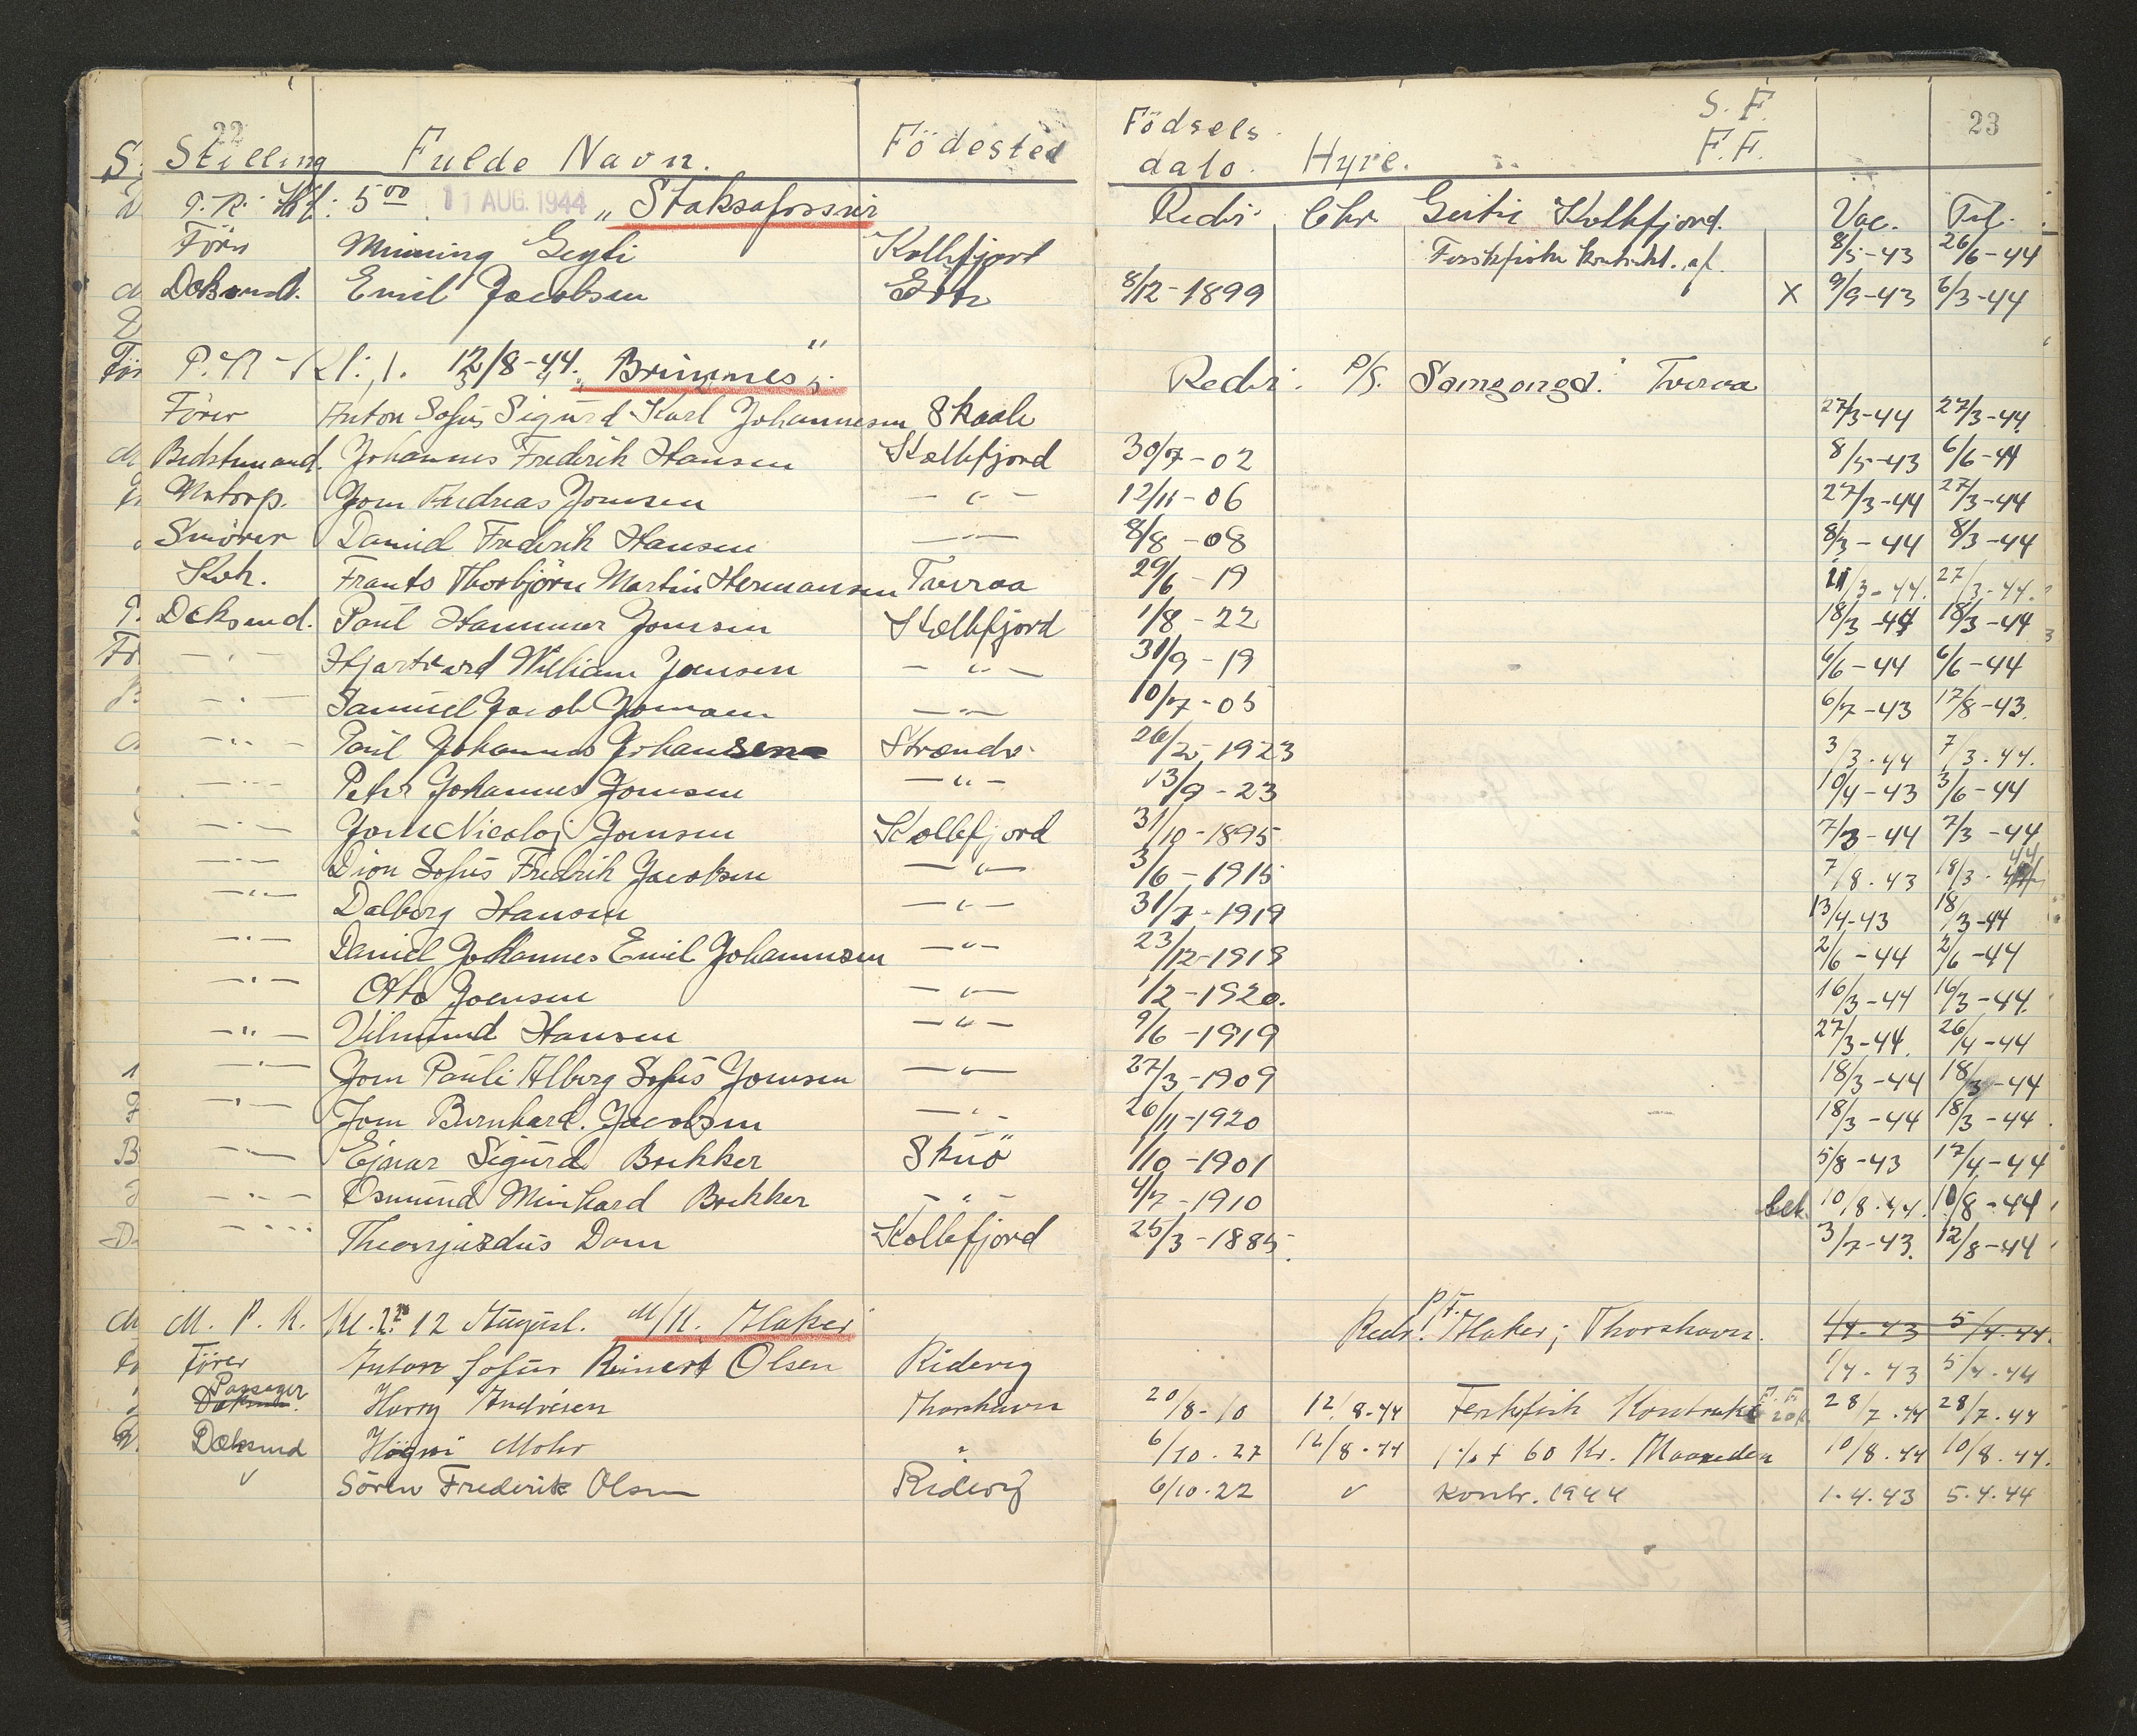 22 S. F. 23
Stilling Fulde Navn. Födested Födsels dato. Hyre. F. F.
P. R. Kl: 5⁰⁰ 11 AUG. 1944 „Stoksafossur Redri Chr. Kollefjord. Vac. Tul.
Förer Kollefjord Ferskfiske kontrakt. af. 8/5-43 26/6-44
Deksmd. Emil Jacobsen 8/12-1899 X 9/9-43 6/3-44
P. R - Kl: 1. 12/8-44. „Brimnes" Redri. P/S. Tveraa
Förer Anton Sofus Sigurd Karl Johannesen Skaale 27/3-44 27/3-44
Bedstemand. Johannes Frederik Hansen Kollefjord 30/7-02 8/5-43 6/6-44
Motorp. Joen Andreas Joensen -"- 12/11-06 27/3-44 27/3-44
Smörer Daniel Frederik Hansen -"- 8/8-08 8/3-44 8/3-44
Kok. Frants Thorbjörn Martin Hermansen Tveraa 29/6-19 /3-44. 27/3-44.
Deksmd. Poul Hammer Joensen Kollefjord 1/8-22 18/3-44 18/3-44
-"- Hjartvard William Joensen -"- /9-19 6/6-44 6/6-44
-"- Samuel Jacob Joensen -"- 10/7-05 6/7-43 17/8-43.
-"- Poul Johannes Johansen Strendr. 26/2 1923 3/3-44 7/3-44.
-"- Peter Johannes Joensen -"- 13/9-23 10/4-43 3/6-44
-"- Joen Nicolaj Joensen Kollefjord 31/10-1895 7/3-44 7/3-44
-"- Dion Sofus Fredrik Jacobsen -"- 3/6-1915 7/8-43 18/3-44
-"- Dalberg Hansen -"- 31/7-1919 13/4-43 18/3-44
-"- Daniel Johannes Emil Johannesen -"- 23/12-1919 2/6-44 2/6-44
-"- Otto Joensen -"- 1/2-1920. 16/3-44 16/3-44.
-"- Vilmund Hansen -"- 9/6-1919 27/3-44. 26/4-44
-"- Joen Pauli Alberg Sofus Joensen -"- 27/3-1909 18/3-44 18/3-44
-"- Joen Bernhard. Jacobsen -"- 26/11-1920 18/3-44 18/3-44
-"- Ejnar Sigurd Brekker Skuö 1/10-1901 5/8-43 17/4-44
-"- Osmund Meinhard Brekker -"- 4/7-1910 bek. 10/8-44. 10/8-44
-"- Dam Kollefjord 25/3-1885. 3/7-43. 12/8-44
M. P. R. Kl. 12 August. M/K. Haker Redr. P/F. Haker; Thorshavn. 1/4-43 5/4-44.
Förer Anton Sofus Reinert Olsen Ridevig 1/4-43 5/4-44
Passager Deksmd. Harry Andresen Thorshavn 20/8-10 12/8-44 Ferskfisk Kontrakt 28/7-44 28/7-44
Deksmd Högni Mohr " 6/10.27 12/8-44 1% + 60 Kr. Maaneden 10/8.44 10/8.44.
v Sören Frederik Olsen Ridevig 6/10.22 v Kontr. 1944 1.4.43 5.4.44